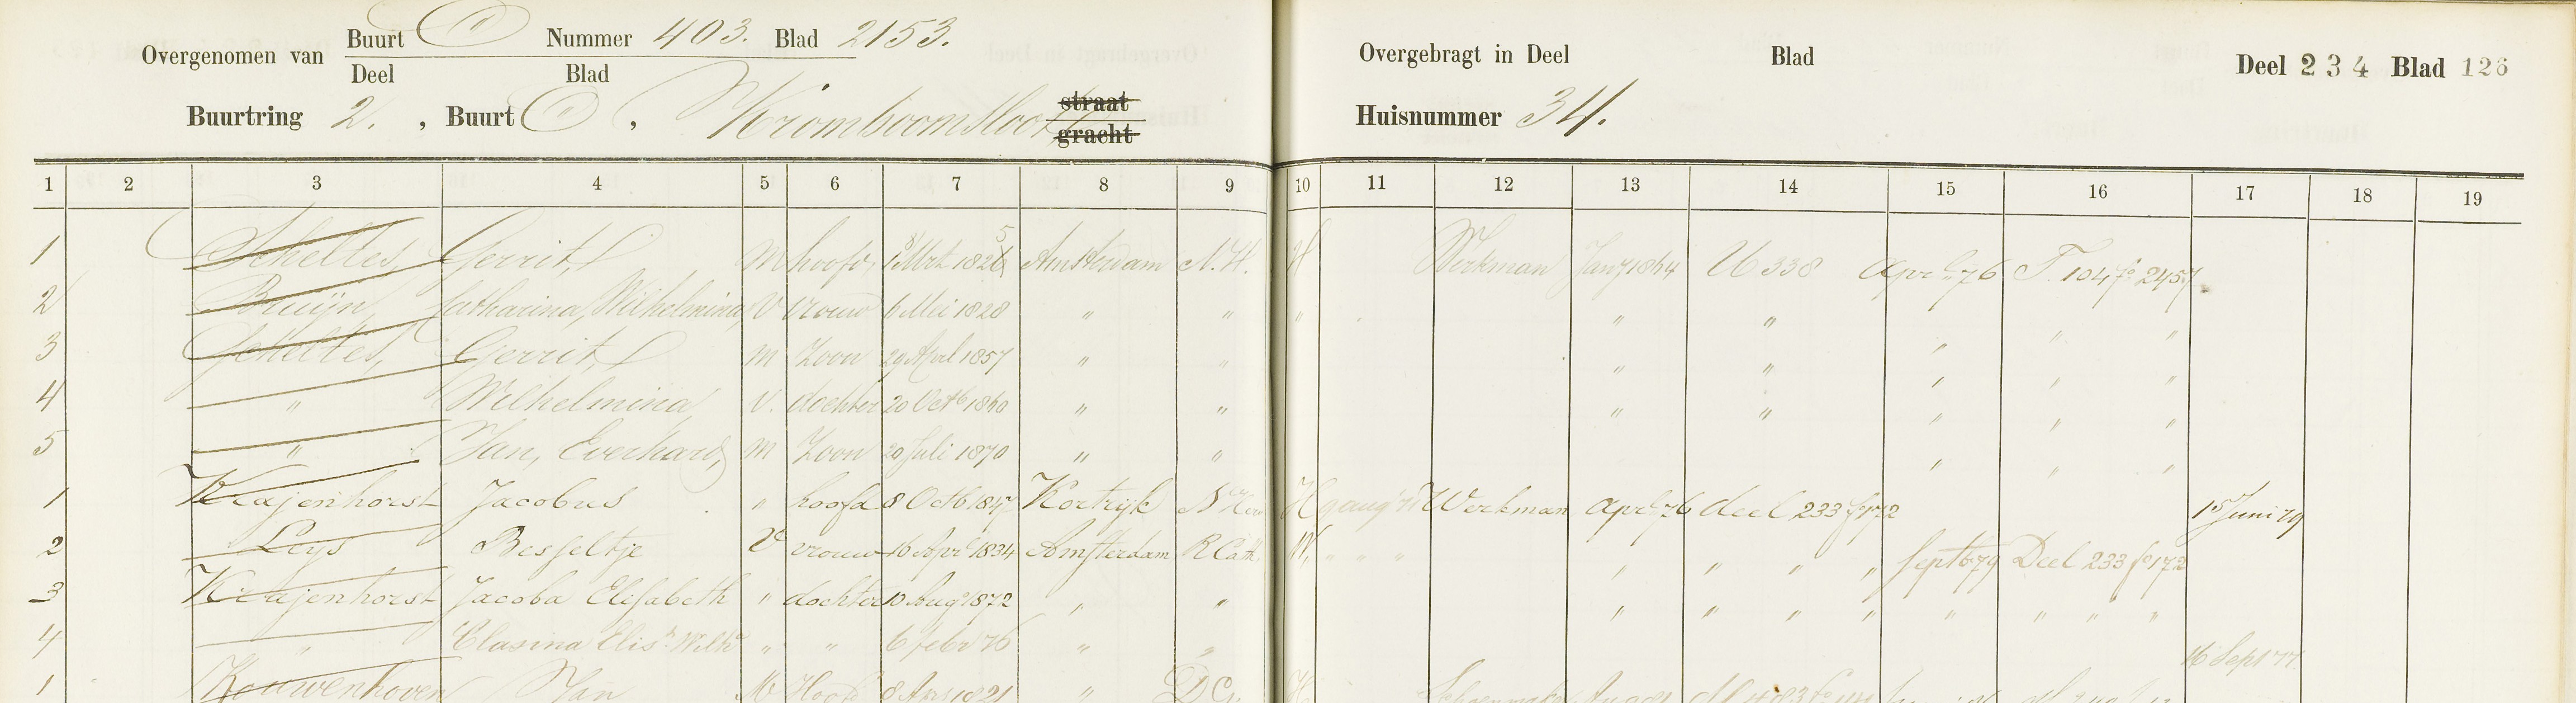 Overgenomen van Buurt C Nummer 403. Blad 2153.
Deel Blad
Overgebragt in Deel Blad
Deel 234 Blad 126
Buurtring 2. , Buurt C , Kromboomsloot straat gracht
Huisnummer 34.
1 2 3 4 5 6 7 8 9 10 11 12 13 14 15 16 17 18 19
1 Scheltes, Gerrit, M hoofd, Mrt 1825 Amsterdam N.H. H Werkman Jany 1864 U 338 April 76 T. 104 fo 2457
2 Bruijn, Catharina, Wilhelmina, V vrouw 6 Mei 1828 " " " " " " " "
3 Scheltes, Gerrit, M Zoon 29 April 1857 " " " " " " "
4 " Wilhelmina, V. dochter 20 Octb 1860 " " " " " " "
5 " Jan, Everhard, M Zoon 20 Juli 1870 " " " " "
1 Krajenhorst Jacobus " hoofd 8 Octb 1847 Kortrijk N Herv H g aug 71 Werkman April 76 deel 233 fo 172 15 Juni 79
2 Leys Besseltje V vrouw 16 April 1834 Amsterdam R Cath W, " " " " " " " Septb 79 Deel 233 fo 172
3 Krajenhorst Jacoba Elisabeth " dochter 10 Aug 1872 " " " " " " " " " "
4 " Clasina Elisth Wilha " " 6 febr 76 " " 16 Sept 77
1 Kouwenhoven Jan M. Hoofd 8 Apr 1821 " D G. H Schoenmaker